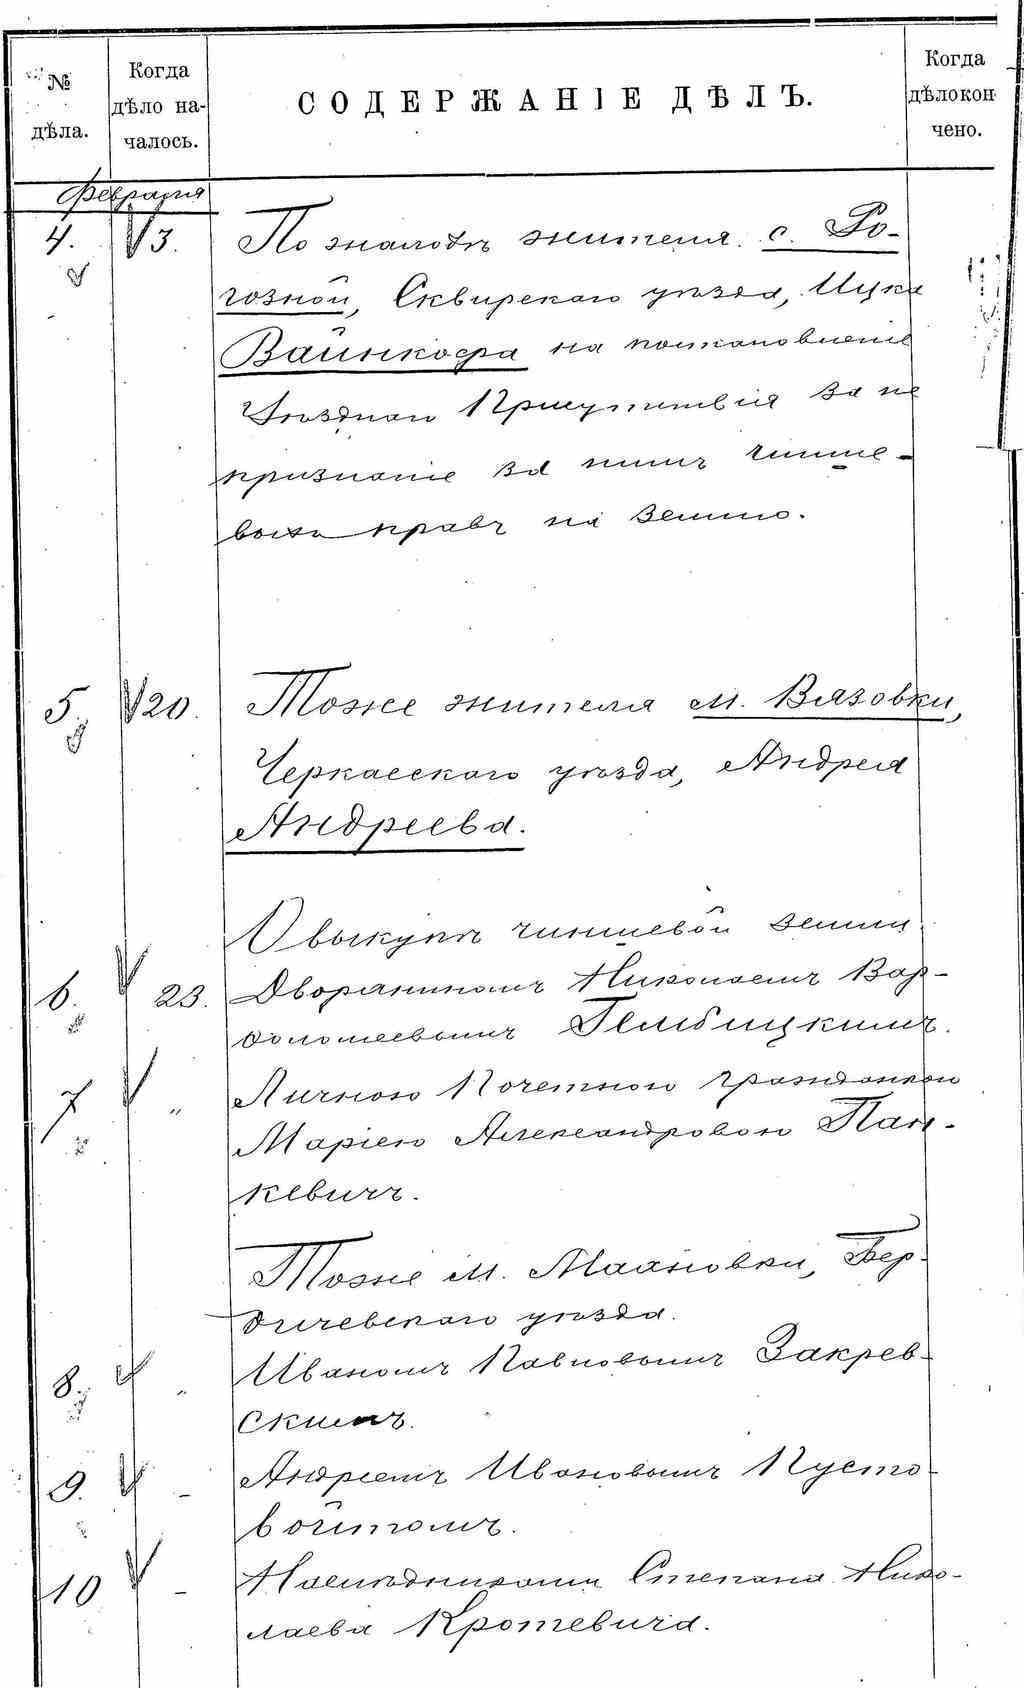 № дѣла.
Когда дѣло на-
чалось.
СОДЕРЖАНІЕ ДѢЛЪ.
Когда
дѣло кон-
чено.
Февраля
4. 3. По жалобѣ жителя с. Ро-
гозной, Сквирскаго уѣзда, Ицка
Вайнкофа на постановленіе
Уѣзднаго Присутствія за не
признаніе за нимъ чинше-
выхъ правъ на землю.
5. 20. Тоже жителя м. Вязовки,
Черкасскаго уѣзда, Андрея
Андреева.
О выкупѣ чиншевой земли
6. 23. Дворяниномъ Николаемъ Вар-
ѳоломеевымъ Гембицкимъ.
7 " Личною Почетною гражданкою
Маріею Александровою Пан-
кевичъ.
Тоже м. Махновки, Бер-
дичевскаго уѣзда.
8. " Иваномъ Павловымъ Закрев-
скимъ.
9. - Андреемъ Ивановымъ Пусто-
войтомъ.
10 - Наслѣдниками Степана Нико-
лаева Кротевича.